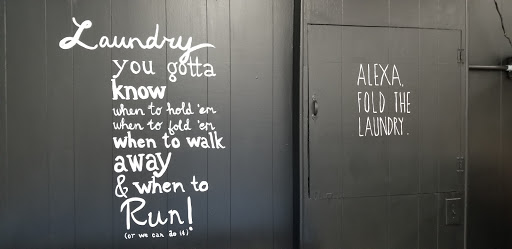 Laundry
you gotta
know
when to hold 'em
when to fold 'em
when to walk
away
& when to
Run!
(or we can do it)
ALEXA,
FOLD THE
LAUNDRY.